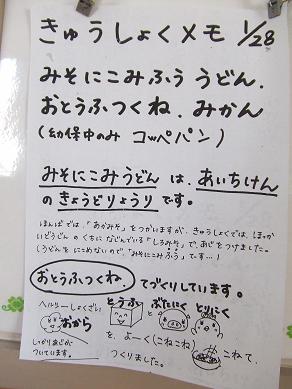 きゅうしょくメモ 1/28
みそにこみふう うどん.
おとうふつくね. みかん
(幼保中のみ コッペパン)
みそにこみうどん は、あいちけん
の きょうどりょうり です。
ほんばでは、「あかみそ」をつかいますが、きゅうしょくでは、ほっか
いどうじんの くちに なじんでいる「しろみそ」で、あじをつけました。
(うどんを にこめないので、「みそにこみふう」です…!
おとうふつくね. てづくりしています。
ヘルシーしょくざい
おから
しっかりあじが
ついています。
とうふ
ぶたにく
とりにく
を、よーく(こねこね) こねて、
つくりました。